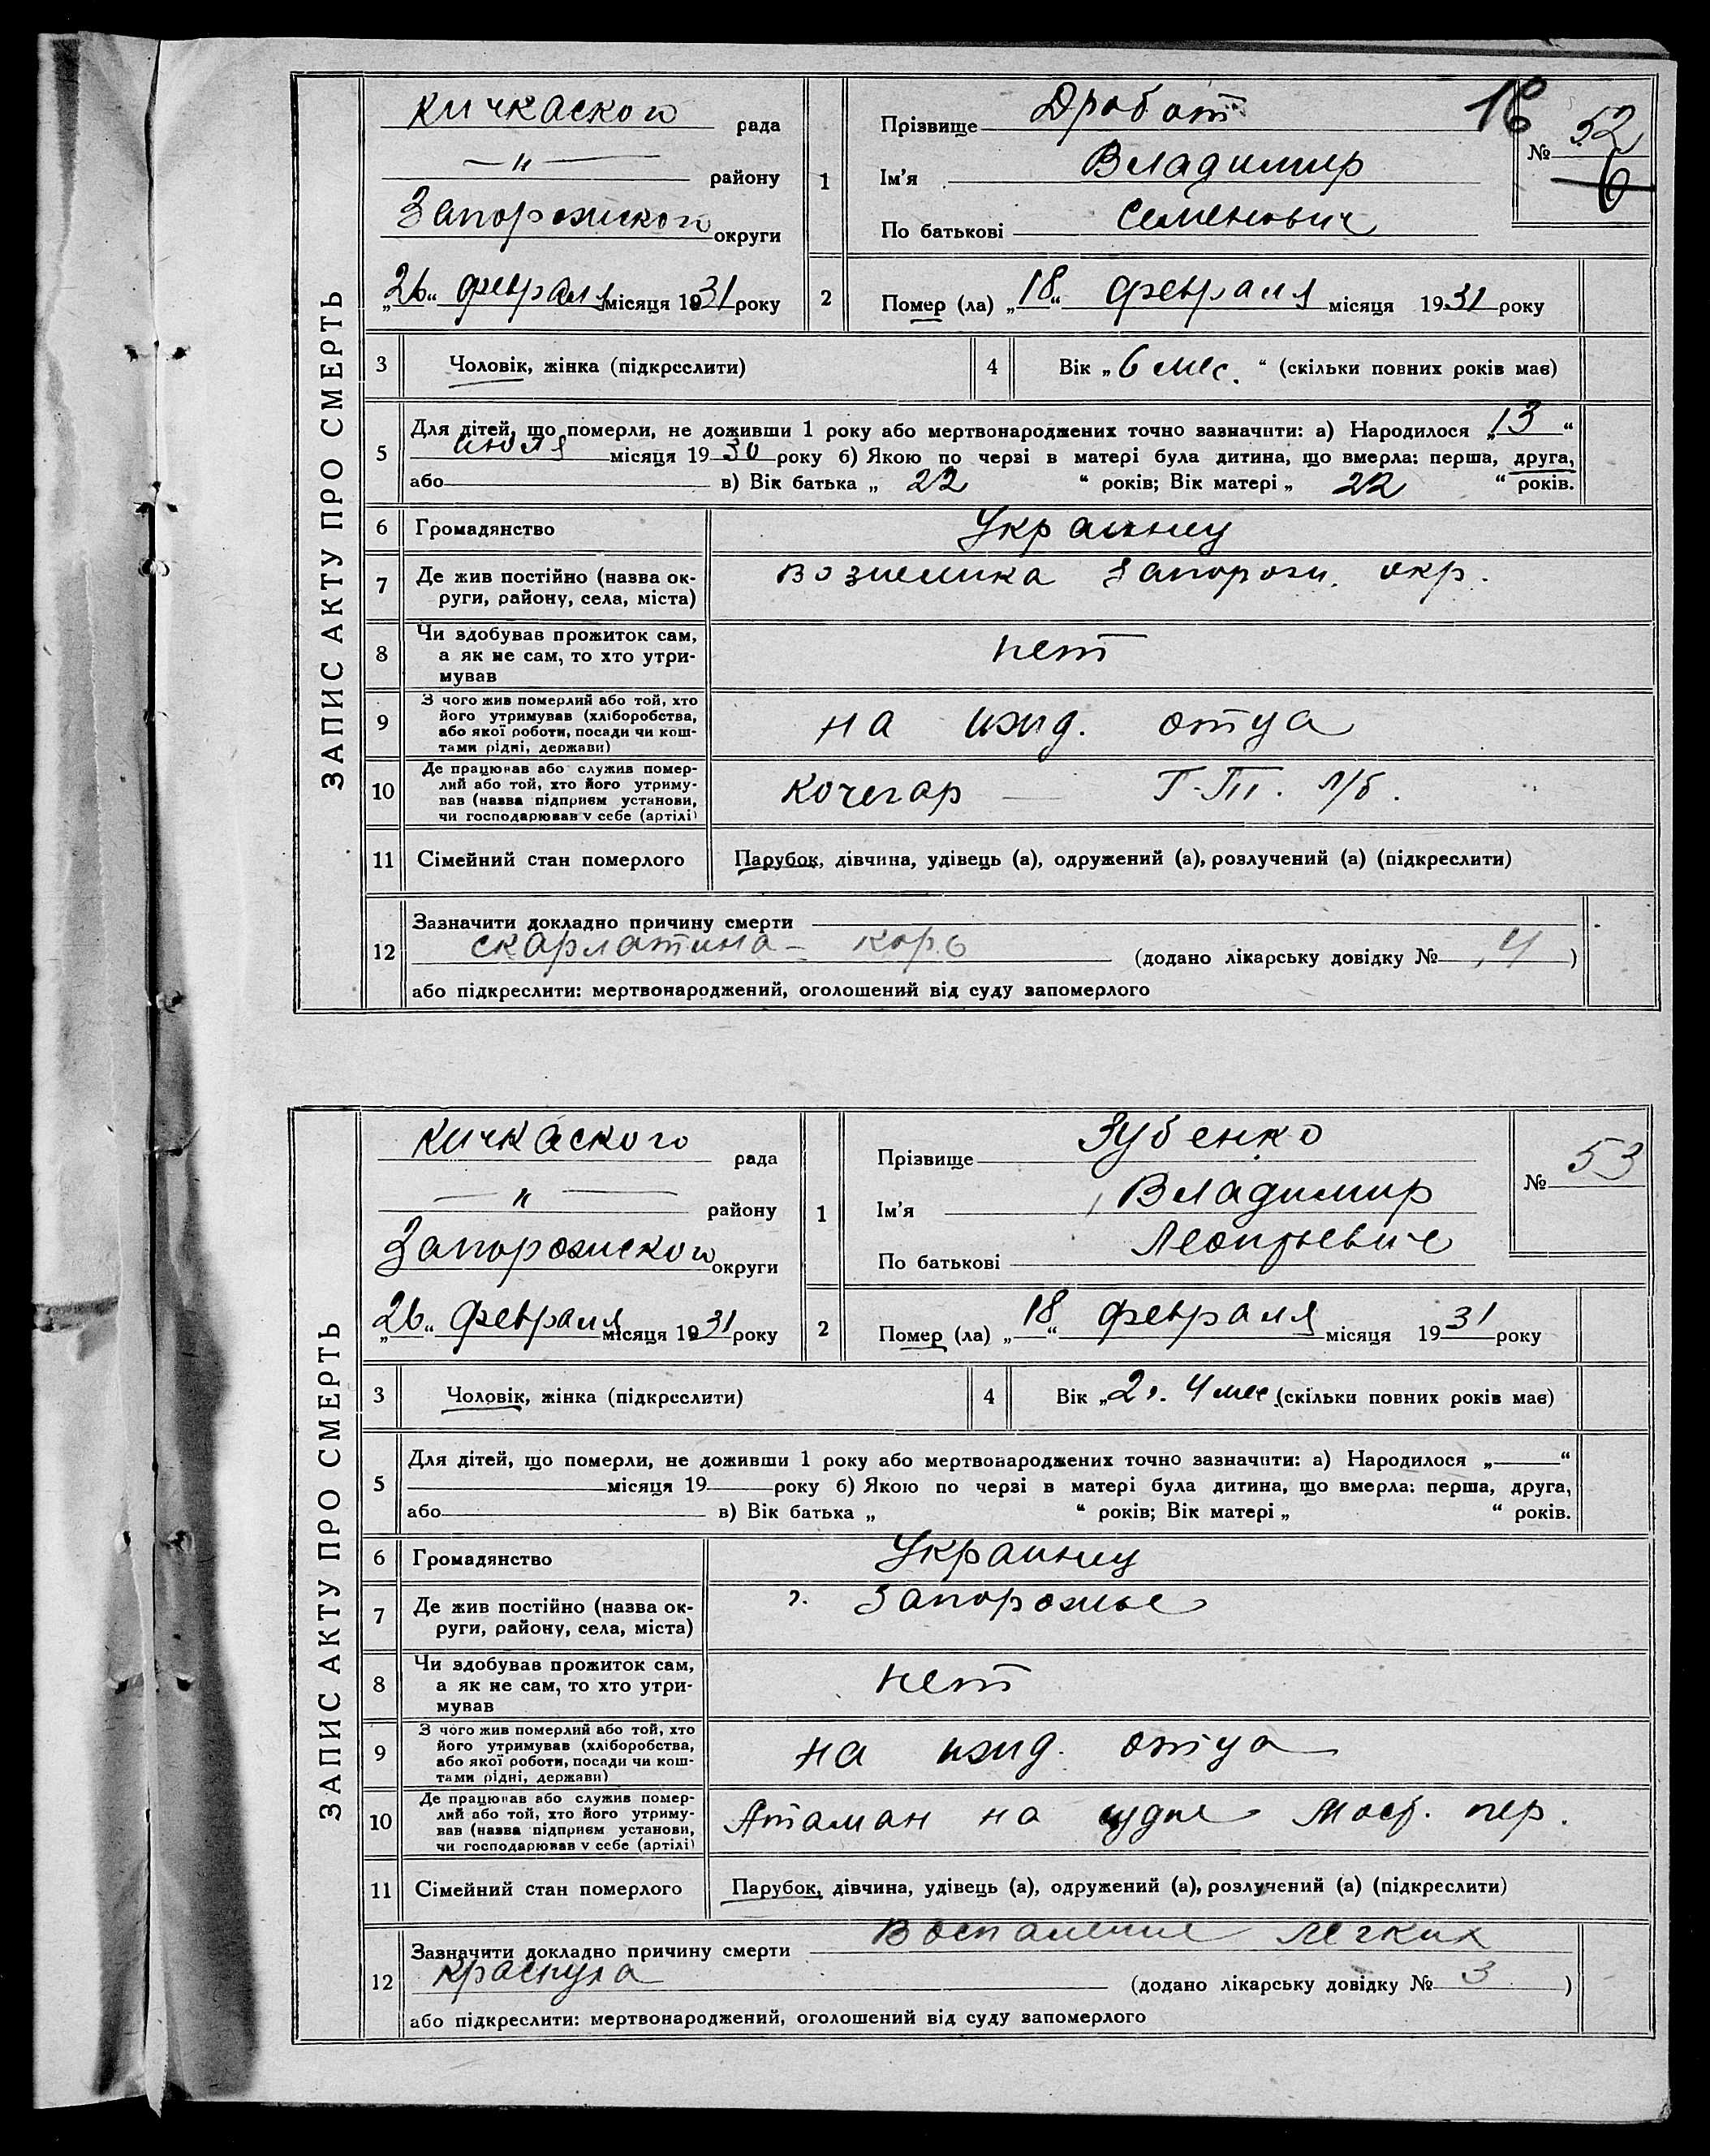 ЗАПИС АКТУ ПРО СМЕРТЬ
Кичкаского рада
—"— району
Запорожского округи
„26“ февраля місяця 1931 року
1
Прізвище Дробот
Ім'я Владимир
По батькові Семенович
16
№ 52
6
2
Помер (ла) „18“ февраля місяця 1931 року
3 Чоловік, жінка (підкреслити)
4 Вік „6 мес.“ (скільки повних років має)
5
Для дітей, що померли, не доживши 1 року або мертвонароджених точно зазначити: а) Народилося „13“
июля місяця 1930 року б) Якою по черзі в матері була дитина, що вмерла: перша, друга,
або в) Вік батька „22“ років; Вік матері „22“ років.
6 Громадянство Украинец
7 Де жив постійно (назва ок-
руги, району, села, міста)
Запорож. окр.
8 Чи здобував прожиток сам,
а як не сам, то хто утри-
мував
нет
9 З чого жив померлий або той, хто
його утримував (хліборобства,
або якої роботи, посади чи кош-
тами рідні, держави)
на ижд. отца
10 Де працював або служив помер-
лий або той, хто його утриму-
вав (назва підприєм установи,
чи господарював у себе (артілі)
Кочегар —
11 Сімейний стан померлого Парубок, дівчина, удівець (а), одружений (а), розлучений (а) (підкреслити)
12
Зазначити докладно причину смерти
скарлатина - корь (додано лікарську довідку № 4)
або підкреслити: мертвонароджений, оголошений від суду запомерлого
ЗАПИС АКТУ ПРО СМЕРТЬ
Кичкаского рада
—"— району
Запорожского округи
„26“ февраля місяця 1931 року
1
Прізвище Зубенко
Ім'я Владимир
По батькові Леонтьевич
№ 53
2
Помер (ла) „18“ февраля місяця 1931 року
3 Чоловік, жінка (підкреслити)
4 Вік „2 г. 4 мес. (скільки повних років має)
5
Для дітей, що померли, не доживши 1 року або мертвонароджених точно зазначити: а) Народилося „ “
місяця 19 року б) Якою по черзі в матері була дитина, що вмерла: перша, друга,
або в) Вік батька „ “ років; Вік матері „ “ років.
6 Громадянство Украинец
7 Де жив постійно (назва ок-
руги, району, села, міста)
г. Запорожье
8 Чи здобував прожиток сам,
а як не сам, то хто утри-
мував
нет
9 З чого жив померлий або той, хто
його утримував (хліборобства,
або якої роботи, посади чи кош-
тами рідні, держави)
на ижд. отца
10 Де працював або служив помер-
лий або той, хто його утриму-
вав (назва підприєм установи,
чи господарював у себе (артілі)
Атаман на судне пер.
11 Сімейний стан померлого Парубок, дівчина, удівець (а), одружений (а), розлучений (а) (підкреслити)
12
Зазначити докладно причину смерти Воспаление легких
краснуха (додано лікарську довідку № 3)
або підкреслити: мертвонароджений, оголошений від суду запомерлого